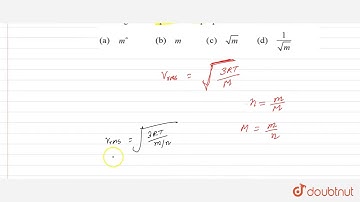 (a) m° (b) m (c) √m (d) 1/√m
Vrms = √(3RT/M)
n = m/M
M = m/n
Vrms = √(3RT/(m/n))
doubtnut